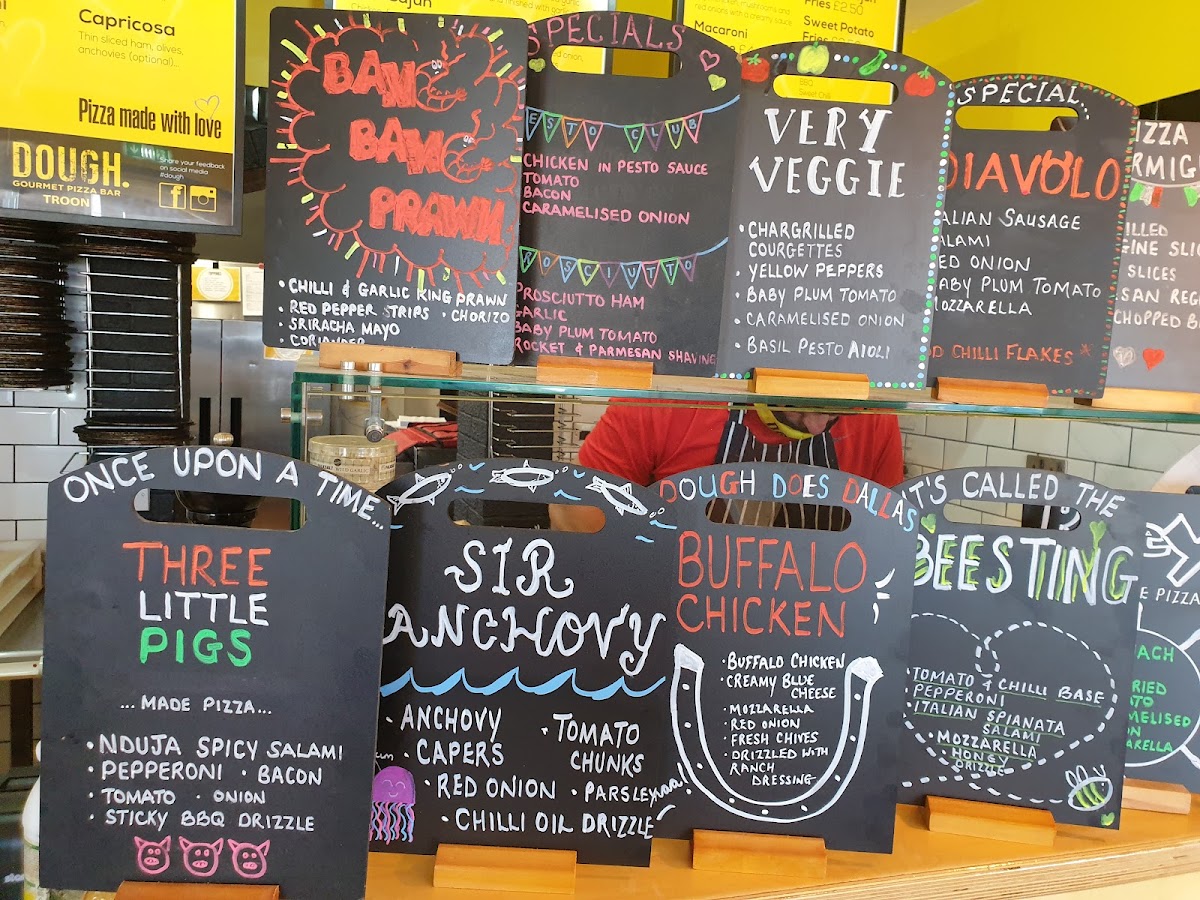 Capricosa
Thin sliced ham, olives,
anchovies (optional)...
Pizza made with love
DOUGH.
GOURMET PIZZA BAR
TROON
Share your feedback
on social media
#dough
Macaroni
Fries £2.50
Sweet Potato
Fries
BAM
BAM
PRAWN
• CHILLI & GARLIC KING PRAWN
• RED PEPPER STRIPS • CHORIZO
• SRIRACHA MAYO
• CORIANDER
SPECIALS
PESTO CLUB
CHICKEN IN PESTO SAUCE
TOMATO
BACON
CARAMELISED ONION
PROSCIUTTO
PROSCIUTTO HAM
GARLIC
BABY PLUM TOMATO
ROCKET & PARMESAN SHAVING
VERY
VEGGIE
• CHARGRILLED
COURGETTES
• YELLOW PEPPERS
• BABY PLUM TOMATO
• CARAMELISED ONION
• BASIL PESTO AIOLI
SPECIAL...
DIAVOLO
ITALIAN SAUSAGE
SALAMI
RED ONION
BABY PLUM TOMATO
MOZZARELLA
CHILLI FLAKES*
SLICES
CHOPPED
ONCE UPON A TIME...
THREE
LITTLE
PIGS
...MADE PIZZA...
• NDUJA SPICY SALAMI
• PEPPERONI • BACON
• TOMATO • ONION
• STICKY BBQ DRIZZLE
SIR
ANCHOVY
• ANCHOVY
• CAPERS
• TOMATO
CHUNKS
• RED ONION • PARSLEY
• CHILLI OIL DRIZZLE
DOUGH DOES DALLAS
BUFFALO
CHICKEN
• BUFFALO CHICKEN
• CREAMY BLUE
CHEESE
• MOZZARELLA
• RED ONION
• FRESH CHIVES
• DRIZZLED WITH
RANCH
DRESSING
IT'S CALLED THE
BEESTING
TOMATO & CHILLI BASE
PEPPERONI
• ITALIAN SPIANATA
SALAMI
• MOZZARELLA
• HONEY
DRIZZLE
PIZZA